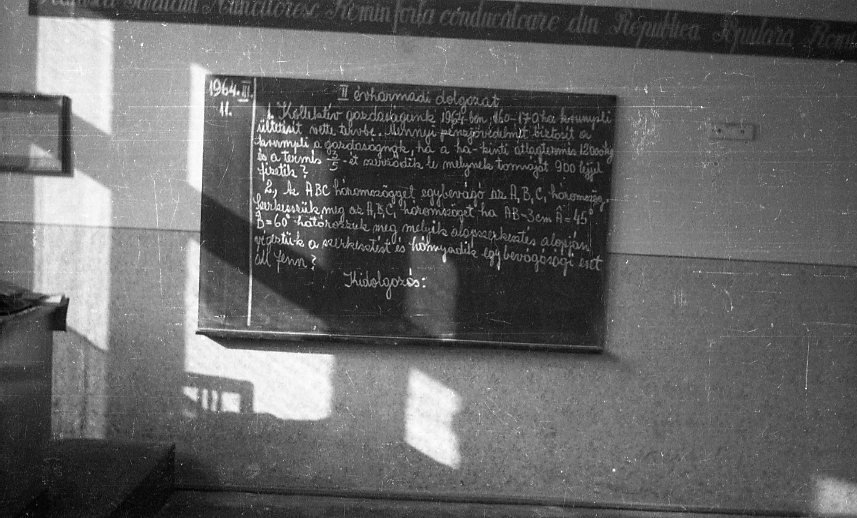 Muncitoresc Romîn forța conducătoare din Republica Populară Romî
1964. III.
11.
II évharmadi dolgozat
1. Kollektív gazdaságunk 1964-ben, 160-170 ha krumpli
ültetését vette tervbe. Mennyi pénzjövedelmet biztosít a
krumpli a gazdaságnak, ha a ha-kinti átlagtermés 12000 kg
és a termés 2/5-ét szerződik le melynek tonnáját 900 lejjel
fizetik?
2., Az ABC háromszöggel egybevágó az A₁B₁C₁ háromszög.
Szerkesszük meg az A₁B₁C₁ háromszöget ha AB=3cm Â=45°
B̂=60° határozzuk meg melyik alapszerkesztés alapján
végeztük a szerkesztést és hányadik egybevágósági eset
áll fenn?
Kidolgozás: